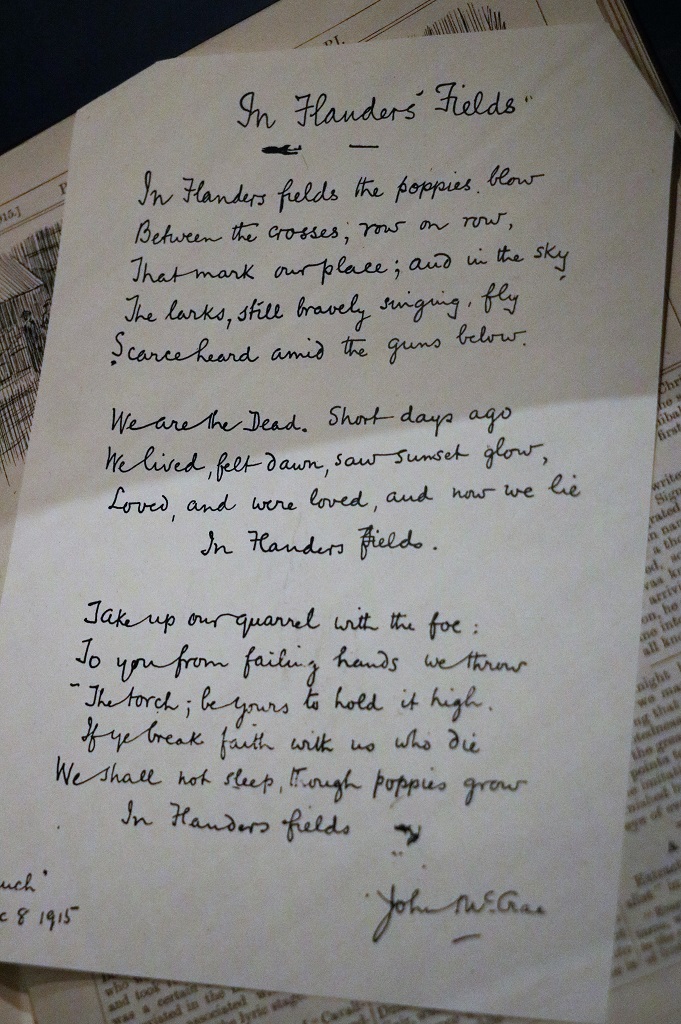 In Flanders Fields
In Flanders fields the poppies blow
Between the crosses, row on row,
That mark our place; and in the sky
The larks, still bravely singing, fly
Scarce heard amid the guns below.
We are the Dead. Short days ago
We lived, felt dawn, saw sunset glow,
Loved, and were loved, and now we lie
In Flanders Fields.
Take up our quarrel with the foe:
To you from failing hands we throw
The torch; be yours to hold it high.
If ye break faith with us who die
We shall not sleep, though poppies grow
In Flanders fields
John McCrae
uch"
c 8 1915